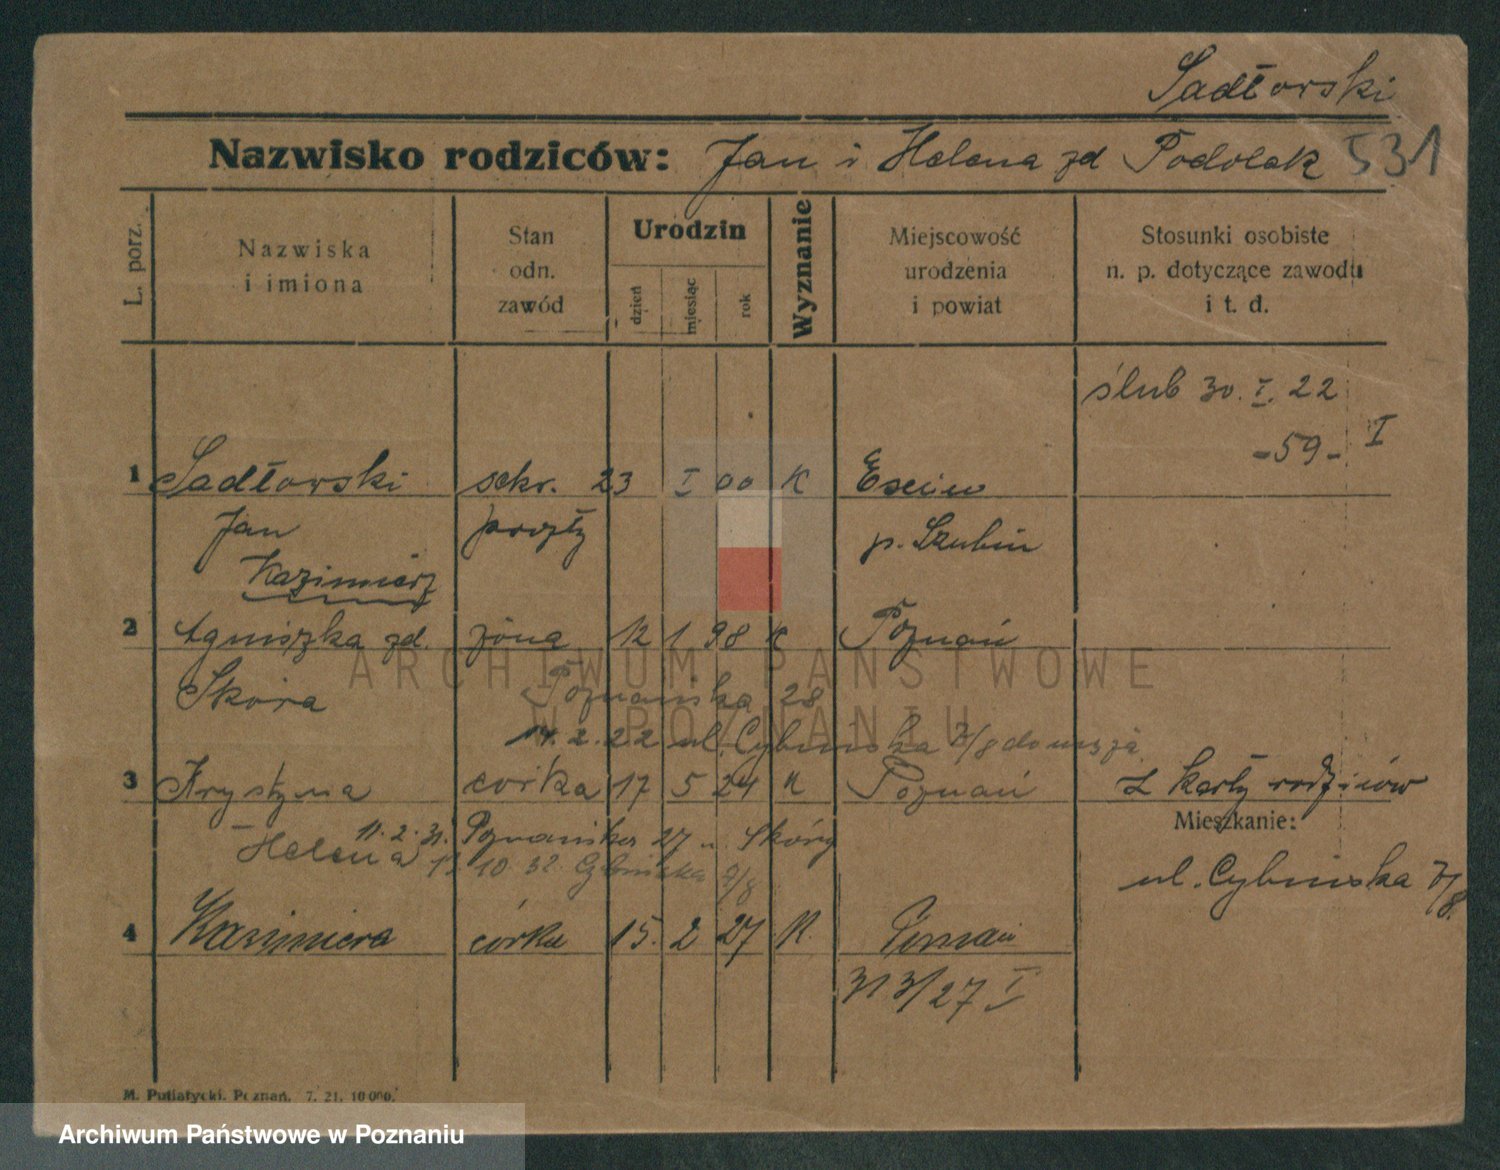 Sadłowski
Nazwisko rodziców: Jan i Helena zd Podolak 531
L. porz.
Nazwiska
i imiona
Stan
odn.
zawód
Urodzin
dzień
miesiąc
rok
Wyznanie
Miejscowość
urodzenia
i powiat
Stosunki osobiste
n. p. dotyczące zawodu
i t. d.
ślub 30. I. 22
-59- I
1 Sadłowski sekr. 23 I 00 K
Jan poczty p. Szubin
Kazimierz
2 Agnieszka zd. żona 12 1 98 K Poznań
Skóra Poznańska 28
14.2.22 ul. Cybińska 7/8
3 Krystyna córka 17 5 24 K Poznań z karty rodziców
Mieszkanie:
11.2.31. Poznańska 27 u. Skóry
Helena 12.10.32 Cybińska 7/8
ul. Cybińska 7/8
4 Kazimiera córka 15. 2 27 K. Poznań
313/27 I
M. Putiatycki. Poznań. 7. 21. 10000.
ARCHIWUM PAŃSTWOWE
W POZNANIU
Archiwum Państwowe w Poznaniu